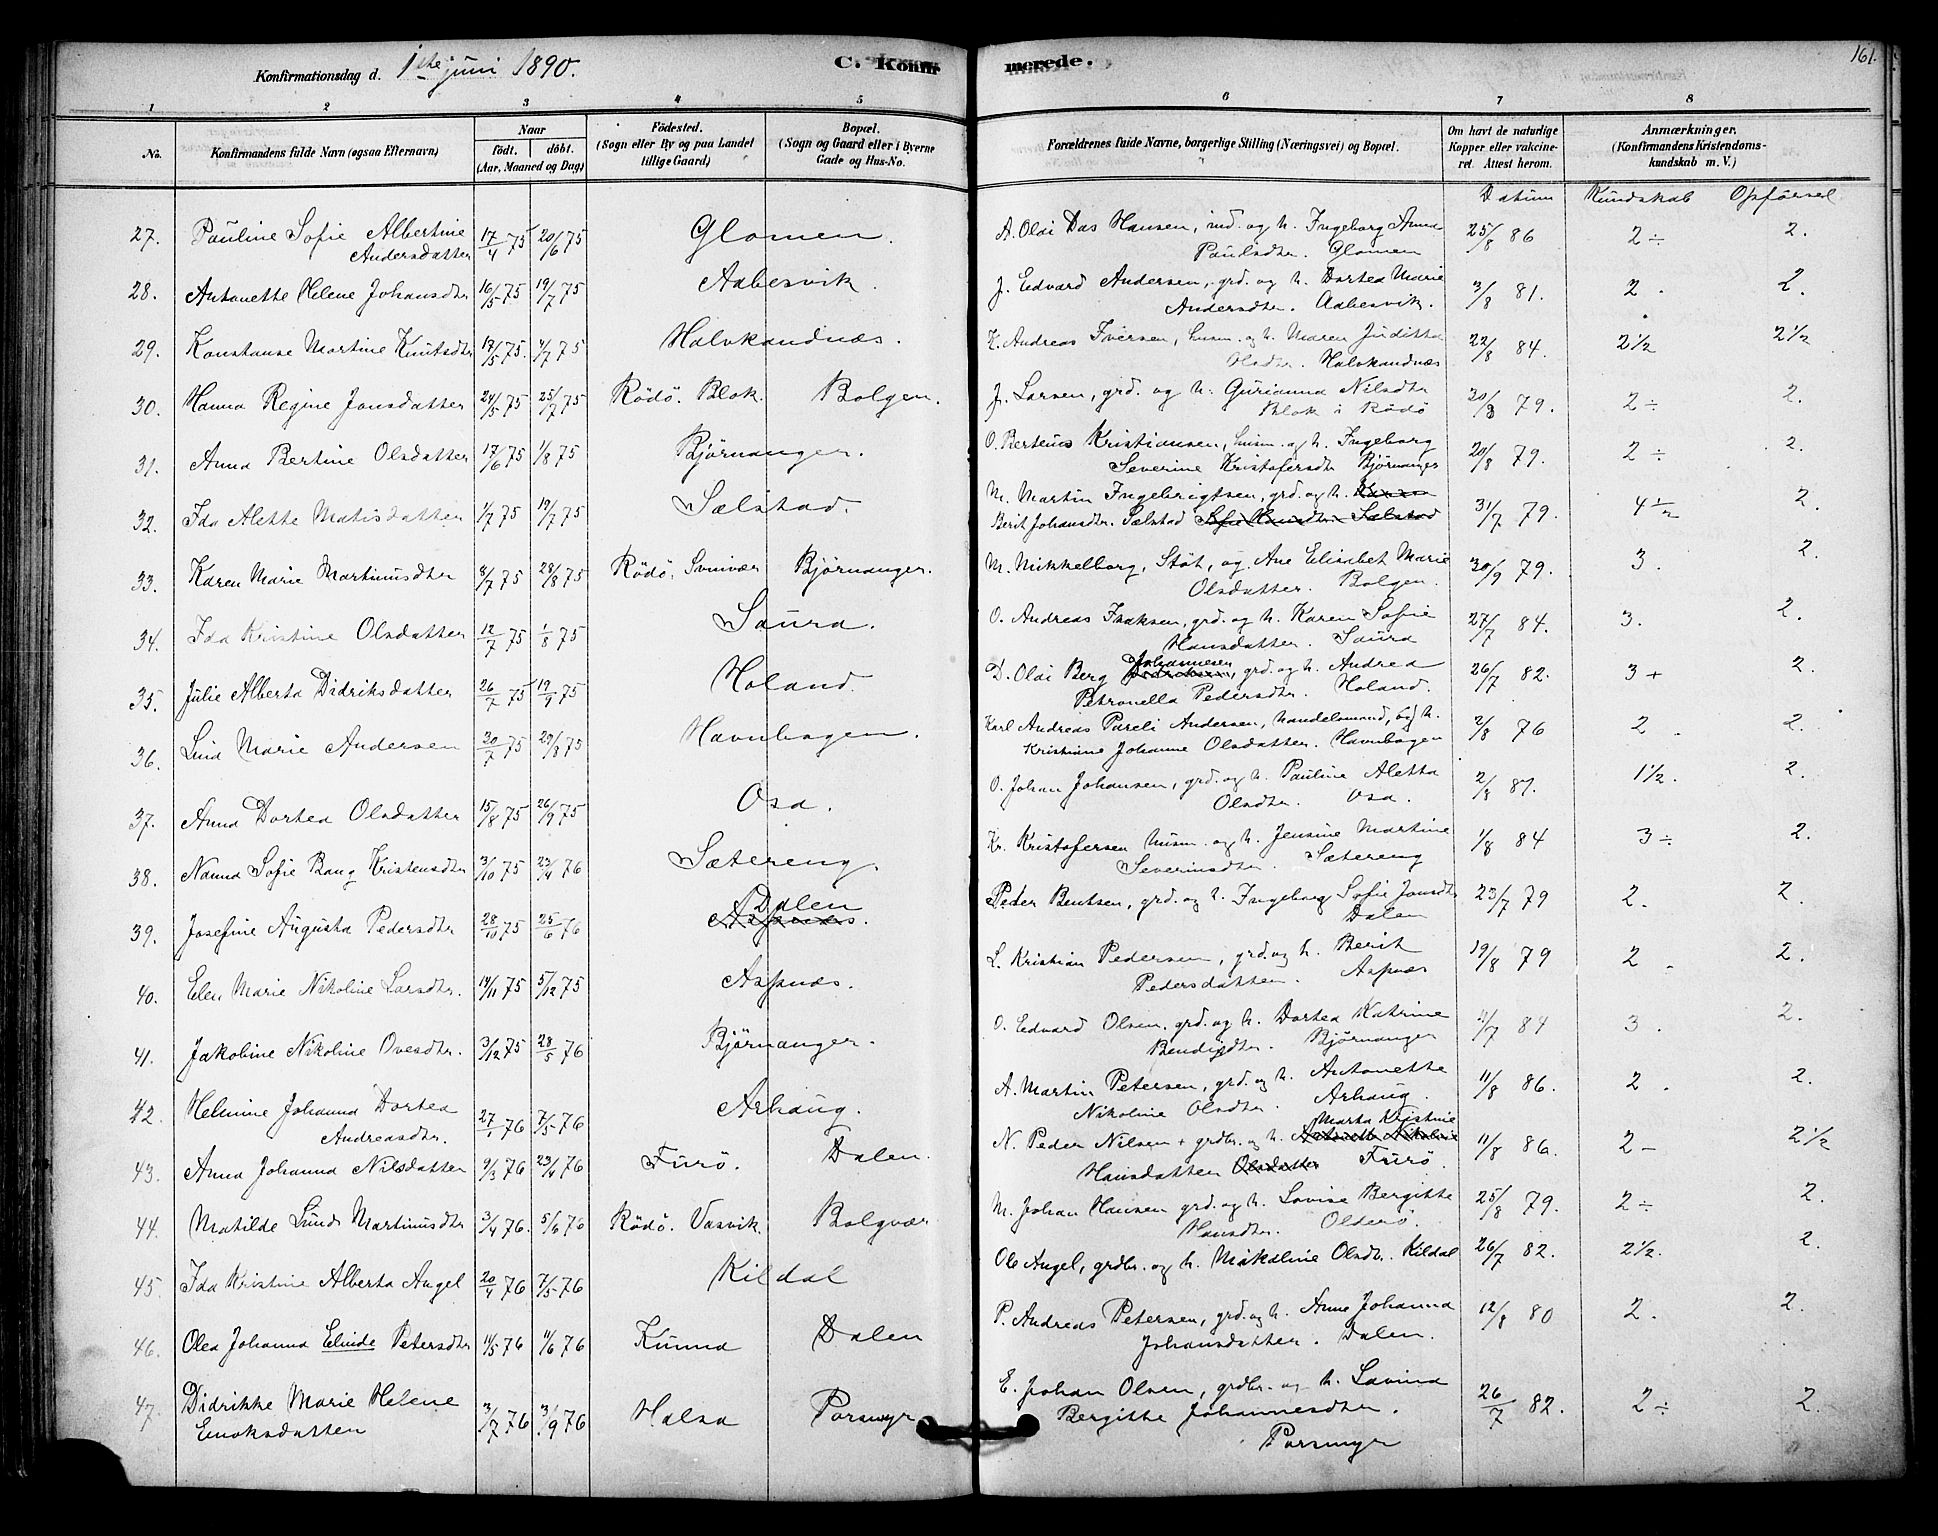 161.
Konfirmationsdag d. 1ste juni 1890.
C. Konfirmerede.
1 2 3 4 5 6 7 8
No.
Konfirmandens fulde Navn (ogsaa Efternavn)
Naar
födt. döbt.
(Aar, Maaned og Dag)
Födested.
(Sogn eller By og paa Landet
tillige Gaard)
Bopæl.
(Sogn og Gaard eller i Byerne
Gade og Hus-No.
Forældrenes fulde Navne, borgerlige Stilling (Næringsvei) og Bopæl.
Om havt de naturlige
Kopper eller vakcine-
ret. Attest herom.
Anmærkninger.
(Konfirmandens Kristendoms-
kundskab m. V.)
Datum Kundskab Opförsel
27. Pauline Sofie Albertine 17/4 75 20/6 75 Glomen. A. Olai Das Hansen, ind. og h. Ingeborg Anna 25/8 86 2 ÷ 2.
Andersdatter Paulsdtr. Glomen
28. Antonette Helene Johansdtr 16/5 75 19/7 75 Aabesvik. J. Edvard Andersen, grd. og h. Dortea Marie 3/8 81. 2. 2.
Andersdtr. Aabesvik.
29. Konstanse Martine Knutsdtr 18/5 75. 4/7 75 Halvkandnæs. K. Andreas Iversen, husm. og h. Maren Juditha 22/8 84. 2½ 2½
Halvkandnæs
30. Hanna Regine Jonsdatter 24/5 75 25/7 75 Rödö. Blok. Bolgen. J. Larsen, grd. og h. Gurianna Nilsdtr 30/8 79. 2 ÷ 2.
Blok i Rödö
31. Anna Bertine Olsdatter 17/6 75 1/8 75 Bjørnanger. O. Berteus Kristiansen, husm. og h. Ingeborg 20/8 79. 2 ÷ 2.
Severine Kristofersdtr Bjørnanger
32. Ida Alette Matisdatter 1/7 75 19/7 75 Sælstad. M. Martin Ingebrigtsen, grd. og h. 31/7 79. 4½ 2.
Berit Johansdtr. Sælstad Sælstad
33. Karen Marie Martinusdtr 8/7 75 28/8 75 Rödö. Svinvær Bjørnanger. M. Mikkelborg, Støt, og Ane Elisabet Marie 30/9 79. 3. 2.
Olsdatter. Bolgen.
34. Ida Kristine Olsdatter 12/7 75 1/8 75 Saura. O. Andreas Isaksen, grd. og h. Karen Sofie 27/7 84. 3. 2.
Hansdatter. Saura
35. Julie Alberta Didriksdatter 26/7 75 19/9 75 Holand. D. Olai Berg Didriksen, Johannesen grd. og h. Andrea 26/7 82. 3 + 2.
Petronella Pedersdtr. Holand.
36. Lina Marie Andersen 30/7 75 29/8 75 Havnbogen. Karl Andreas Pareli Andersen, handelsmand, og h. 2/8 76 2. 2.
Kristiane Johanne Olsdatter. Havnbogen
37. Anna Dortea Olsdatter 15/8 75 26/9 75 Osa. O. Johan Johansen, grd. og h. Pauline Aletta 2/8 87. 1½. 2.
Olsdtr. Osa.
38. Nanna Sofie Bang Kristensdtr 3/10 75 23/4 76 Sætereng. Kr. Kristofersen husm. og h. Jensine Martine 1/8 84 3 ÷ 2.
Severinsdtr. Sætereng
39. Josefine Augusta Pedersdtr 28/10 75 25/6 76 Aspnæs. Dalen Peder Bentsen, grd. og h. Ingeborg Sofie Jonsdtr 23/7 79 2. 2.
Dalen
40. Elen Marie Nikoline Larsdtr. 14/11 75 5/12 75 Aspnæs. L. Kristian Pedersen, grd. og h. Berit 19/8 79 2. 2.
Pedersdatter. Aspnæs
41. Jakobine Nikoline Ovesdtr. 3/12 75 28/5 76 Bjørnanger. O. Edvard Olsen. grd. og h. Dortea Katrine /7 84 3. 2.
Bendixdtr. Bjørnanger
42. Helmine Johanna Dortea 27/1 76 7/5 76 Arhaug. A. Martin Petersen, grd. og h. Antonette 11/8 86. 2. 2.
Andreasdtr. Nikoline Olsdtr. Arhaug.
43. Anna Johanna Nilsdatter 9/3 76 23/4 76 Furö. Dalen. N. Peder Nilsen + grdbr. og h. Antonette Nikoline Marta Kristine 11/8 86. 2 - 2½
Hansdatter Olsdatter Furö.
44. Matilde Lund Martinusdtr 3/4 76. 5/6 76 Rödö. Vasvik. Bolgvær M. Johan Hansen grd. og h. Lovise Bergitte 25/8 79. 2 ÷ 2.
Hansdtr. Olderö.
45. Ida Kristine Alberta Angel 20/4 76 7/5 76 Kildal Ole Angel, grdbr. og h. Mikaline Olsdtr. Kildal 26/7 82. 2½. 2.
46. Olea Johanna Elinde Petersdtr 14/5 76 11/6 76 Kunna Dalen P. Andreas Petersen, grd. og h. Anne Johanna 12/8 80 2. 2.
Johansdatter. Dalen.
47. Didrikke Marie Helene 3/7 76 3/9 76 Halsa Porsmyr E. Johan Olsen, grdbr. og h. Lavina 26/7 82. 2 ÷ 2.
Enoksdatter Bergitte Johannesdtr.
Porsmyr